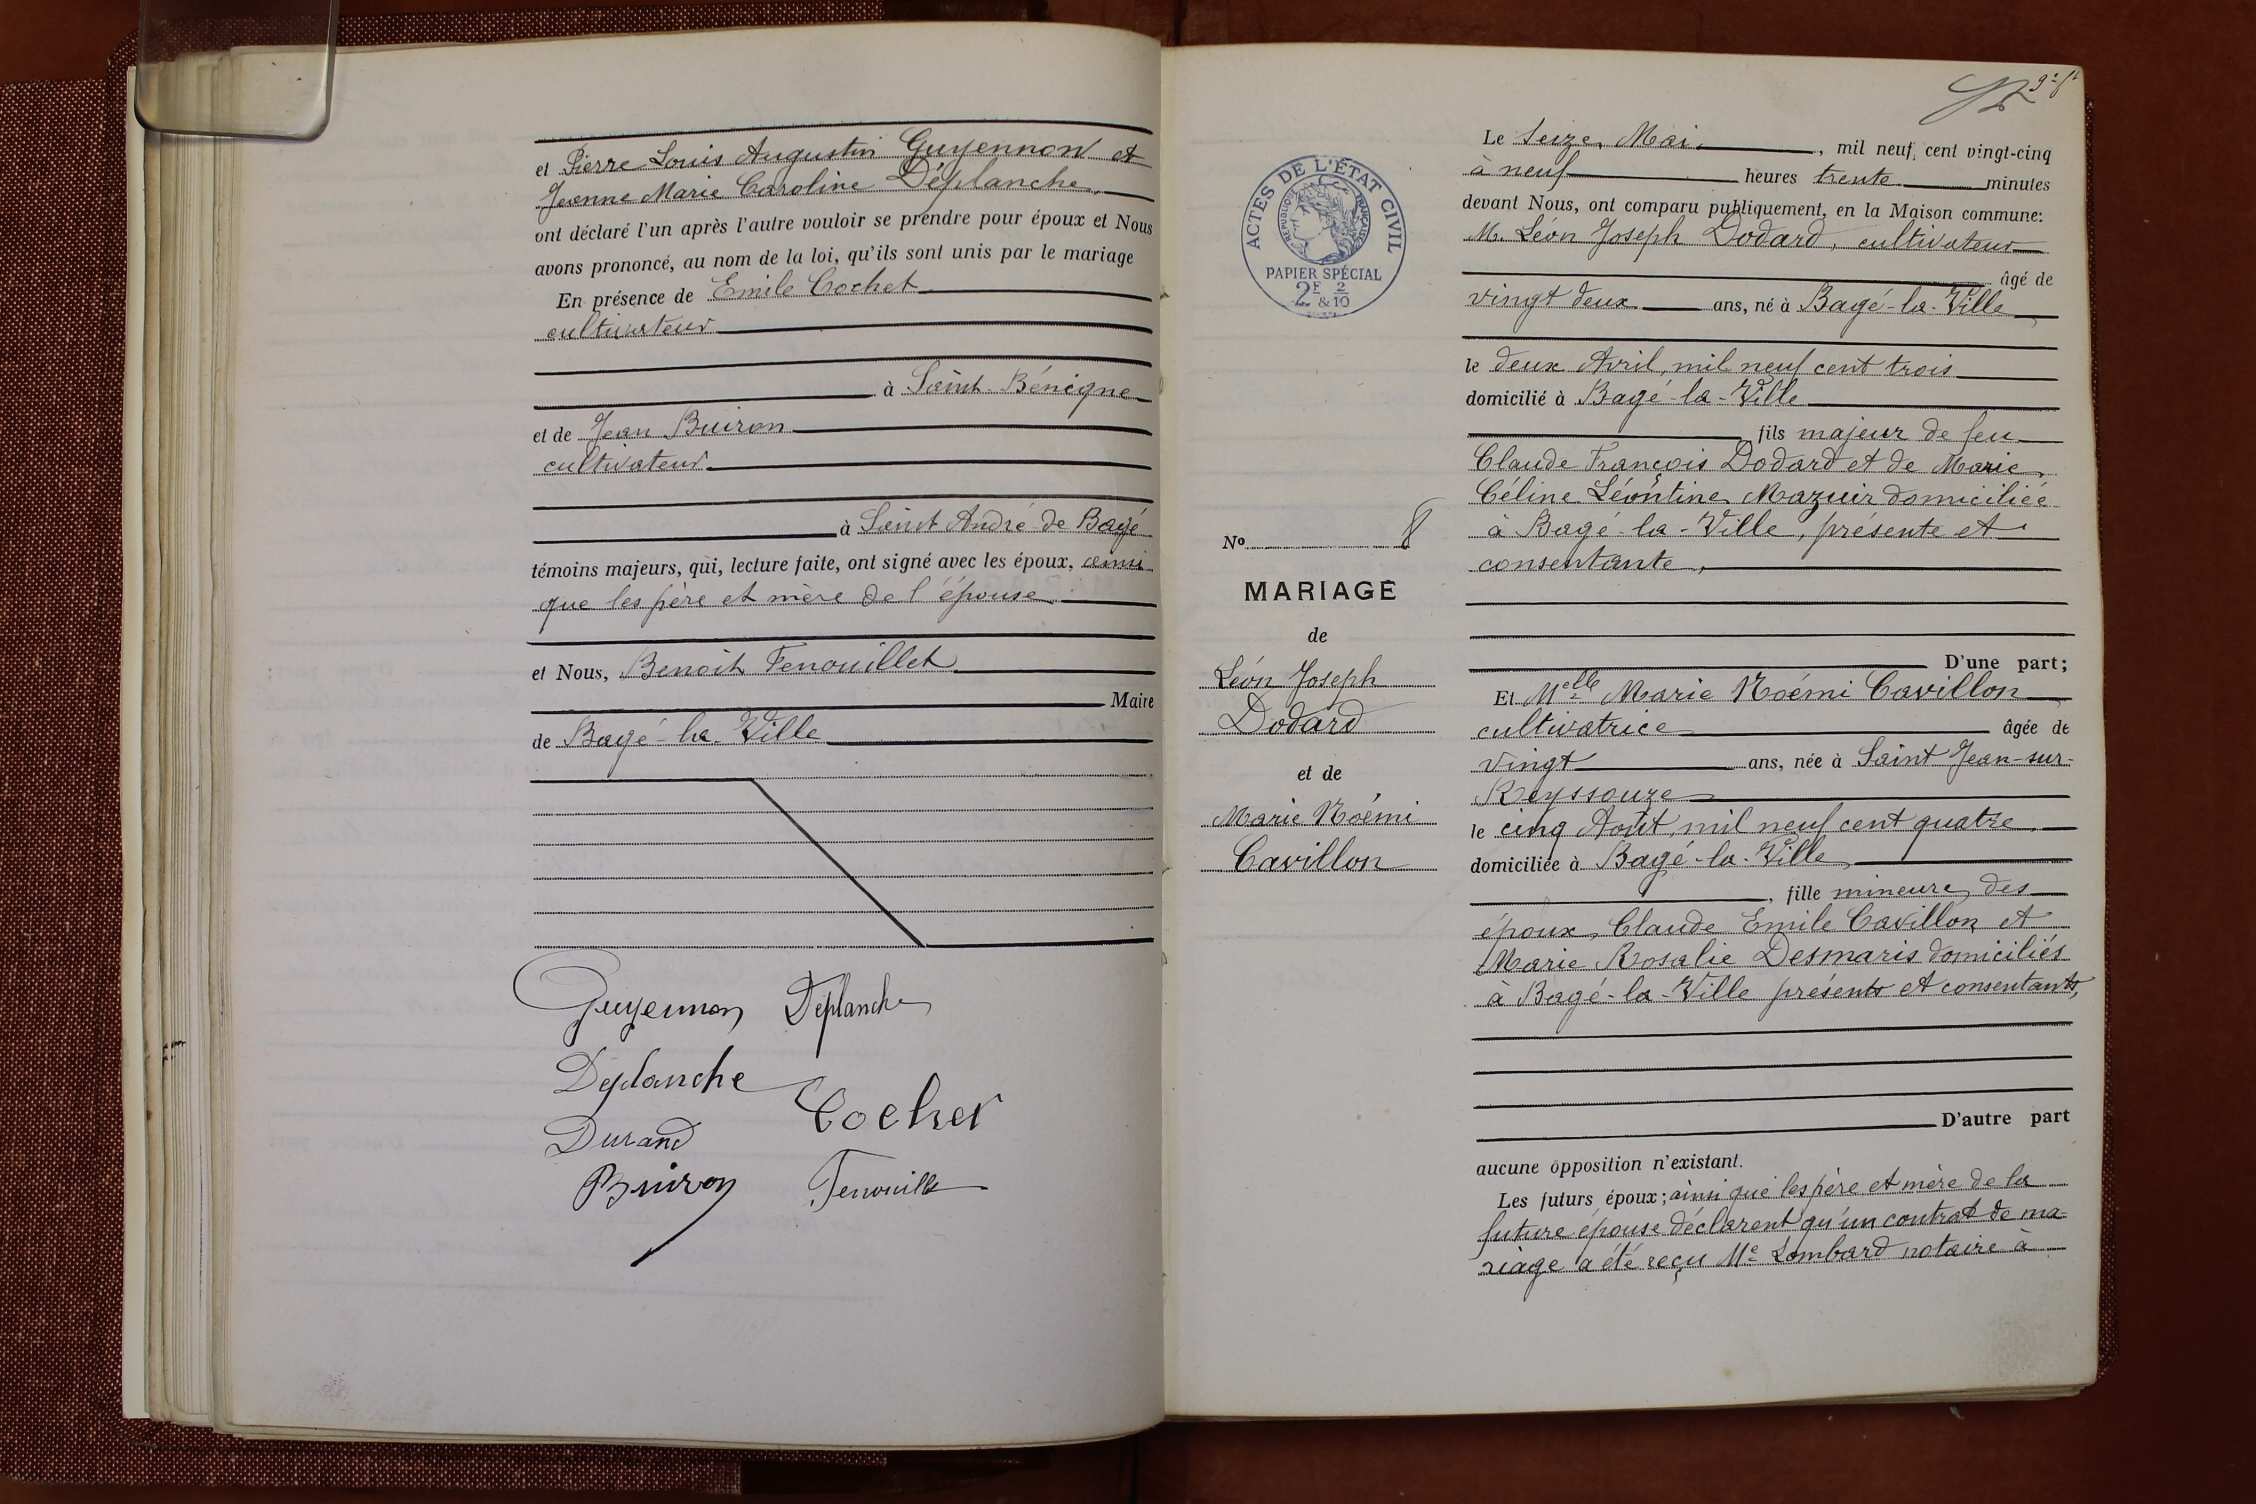 et Pierre Louis Augustin Guyennon et
Jeanne Marie Caroline Déplanche,
ont déclaré l'un après l'autre vouloir se prendre pour époux et Nous
avons prononcé, au nom de la loi, qu'ils sont unis par le mariage
En présence de Emile Cochet
cultivateur
à Saint-Bénigne
et de Jean Buiron
cultivateur
à Saint André-de Bagé
témoins majeurs, qui, lecture faite, ont signé avec les époux, ainsi
que les père et mère de l'épouse
et Nous, Benoit Fenouillet
Maire
de Bagé-la-Ville
Guyennon Déplanche
Deplanche
Cochet
Durand
Buiron Fenouillet
9
ACTES DE L'ÉTAT CIVIL
RÉPUBLIQUE FRANÇAISE
PAPIER SPÉCIAL
2F 2/10
&
No 8
MARIAGE
de
Léon Joseph
Dodard
et de
Marie Noémi
Cavillon
Le Seize Mai, mil neuf cent vingt-cinq
à neuf heures trente minutes
devant Nous, ont comparu publiquement, en la Maison commune:
M. Léon Joseph Dodard, cultivateur
âgé de
vingt deux ans, né à Bagé-la-Ville
le deux Avril, mil neuf cent trois
domicilié à Bagé-la-Ville
, fils majeur de feu
Claude François Dodard et de Marie
Céline Léontine Mazuir domiciliée
à Bagé-la-Ville, présente et
consentante,
D'une part;
Et Melle Marie Noémi Cavillon
cultivatrice âgée de
vingt ans, née à Saint Jean-sur-
Reyssouze
le cinq Août, mil neuf cent quatre,
domiciliée à Bagé-la-Ville
, fille mineure des
époux, Claude Emile Cavillon et
Marie Rosalie Desmaris domiciliés
à Bagé-la-Ville présents et consentants,
D'autre part
aucune opposition n'existant.
Les futurs époux; ainsi que les père et mère de la
future épouse déclarent qu'un contrat de ma-
riage a été reçu Me Lombard notaire à